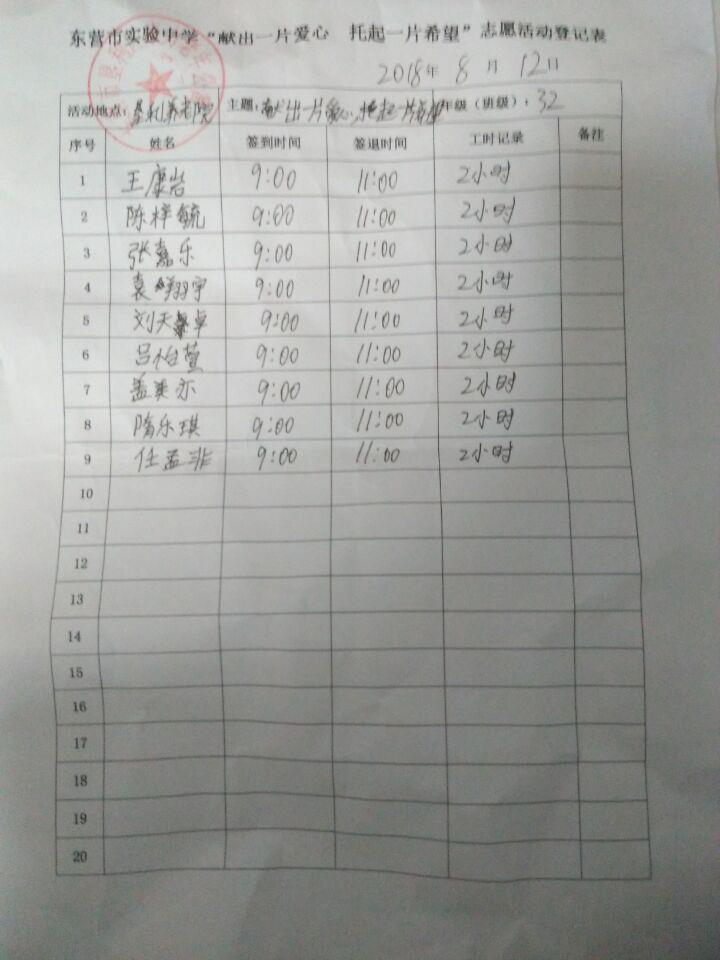 东营市实验中学“献出一片爱心 托起一片希望”志愿活动登记表
2018年 8 月 12日
活动地点: 垦利养老院 主题: 献出一片爱心,托起一片希望 年级（班级）: 32
序号 姓名 签到时间 签退时间 工时记录 备注
1 王康岩 9:00 11:00 2小时
2 陈梓毓 9:00 11:00 2小时
3 张嘉乐 9:00 11:00 2小时
4 袁翔宇 9:00 11:00 2小时
5 刘天卓 9:00 11:00 2小时
6 吕怡萱 9:00 11:00 2小时
7 盖奕亦 9:00 11:00 2小时
8 隋乐琪 9:00 11:00 2小时
9 任孟非 9:00 11:00 2小时
10
11
12
13
14
15
16
17
18
19
20